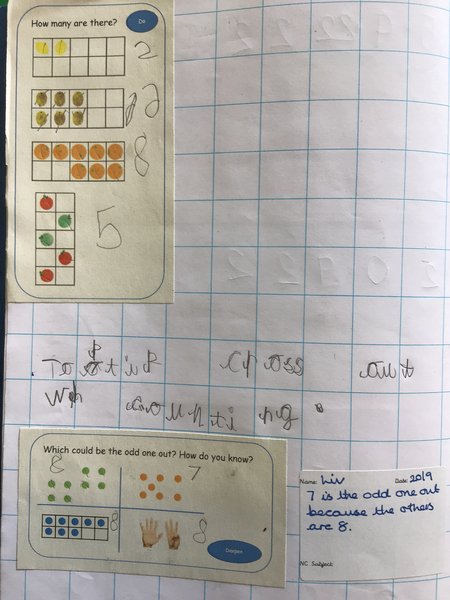 How many are there?
Do
2
8
5
cross out
counting.
Which could be the odd one out? How do you know?
8 7
8 8
Deepen
Name: Liv Date: 20/9
7 is the odd one out
because the others
are 8.
NC Subject: